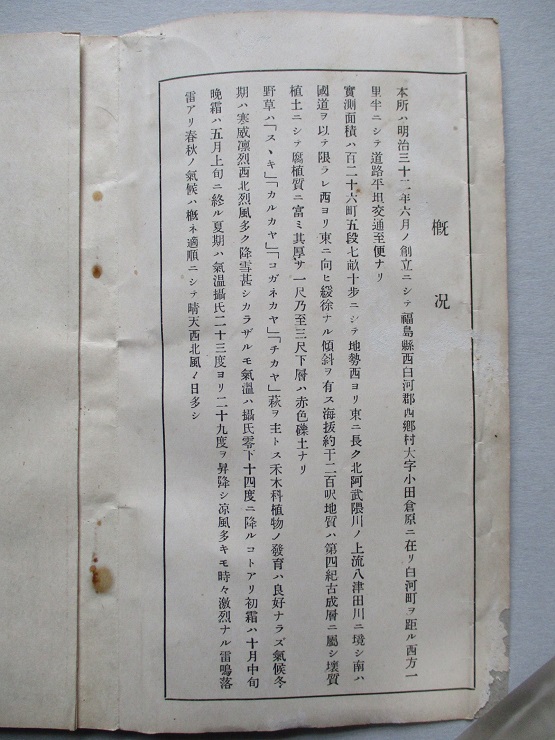 概況
本所ハ明治三十二年六月ノ創立ニシテ福島縣西白河郡西鄕村大字小田倉原ニ在リ白河町ヲ距ル西方一
里半ニシテ道路平坦交通至便ナリ
實測面積ハ百二十六町五段七畝十步ニシテ地勢西ヨリ東ニ長ク北阿武隈川ノ上流八津田川ニ境シ南ハ
國道ヲ以テ限ラレ西ヨリ東ニ向ヒ緩徐ナル傾斜ヲ有ス海拔約千二百呎地質ハ第四紀古成層ニ屬シ壤質
植土ニシテ腐植質ニ富ミ其厚サ一尺乃至三尺下層ハ赤色礫土ナリ
野草ハ「スヽキ」「カルカヤ」「コガネカヤ」「チカヤ」萩ヲ主トス禾本科植物ノ發育ハ良好ナラズ氣候冬
期ハ寒威凛烈西北烈風多ク降雪甚シカラザルモ氣溫ハ攝氏零下十四度ニ降ルコトアリ初霜ハ十月中旬
晩霜ハ五月上旬ニ終ル夏期ハ氣溫攝氏二十三度ヨリ二十九度ヲ昇降シ凉風多キモ時々激烈ナル雷鳴落
雷アリ春秋ノ氣候ハ槪ネ適順ニシテ晴天西北風ノ日多シ